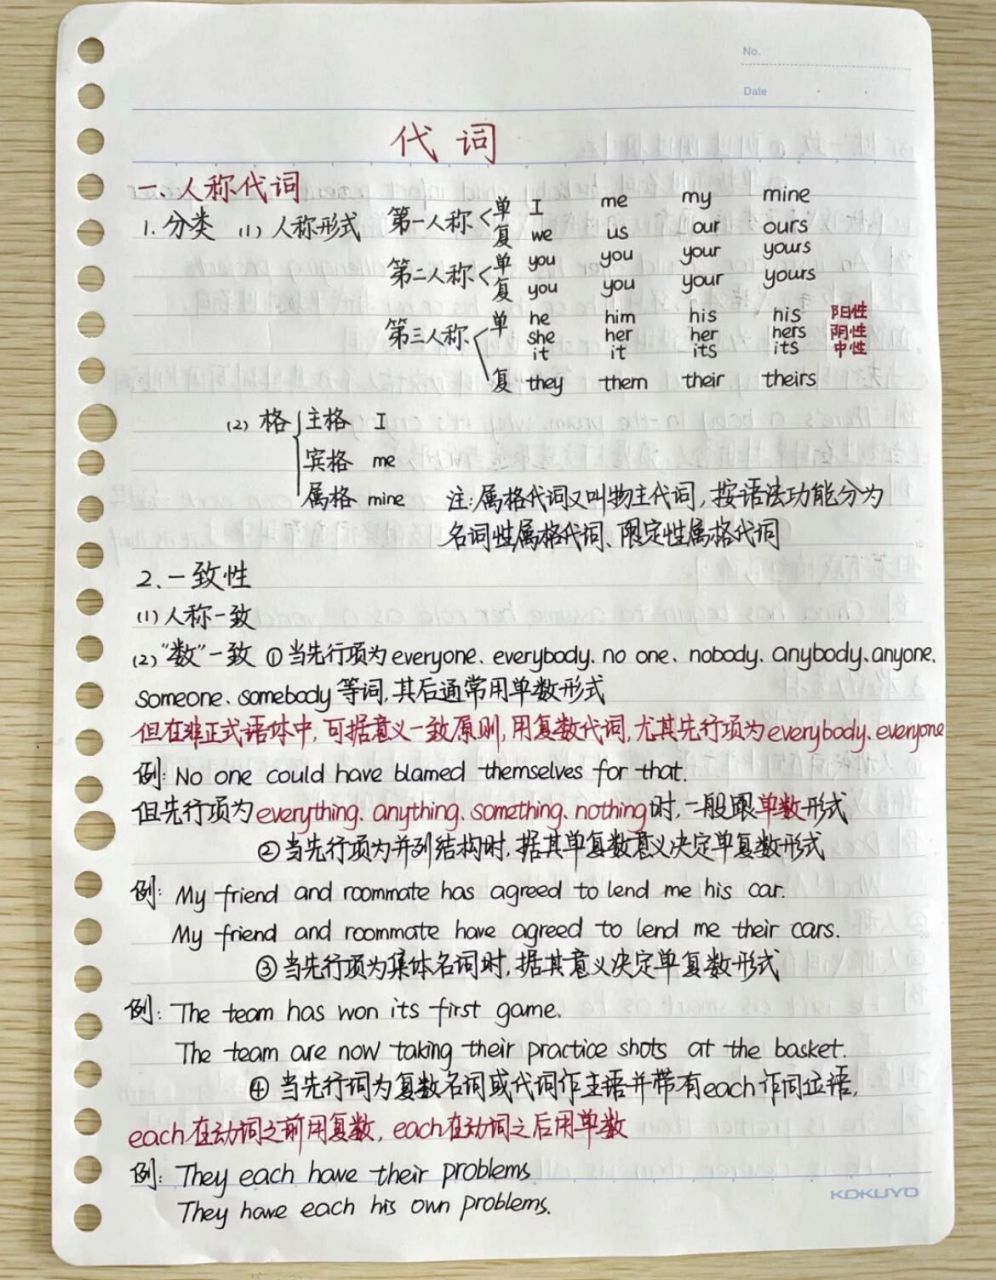 No.
Date
代词
一、人称代词
1.分类 (1) 人称形式 第一人称 单 I me my mine
复 we us our ours
第二人称 单 you you your yours
复 you you your yours
第三人称 单 he him his his 阳性
she her her hers 阴性
it it its its 中性
复 they them their theirs
(2) 格 主格 I
宾格 me
属格 mine 注:属格代词又叫物主代词,按语法功能分为
名词性属格代词、限定性属格代词
2.一致性
(1)人称一致
(2)“数”一致 ①当先行项为everyone、everybody、no one、nobody、anybody、anyone、
someone、somebody等词,其后通常用单数形式
但在非正式语体中,可据意义一致原则,用复数代词,尤其先行项为everybody、everyone
例: No one could have blamed themselves for that.
但先行项为everything、anything、something、nothing时,一般跟单数形式
②当先行项为并列结构时,据其单复数意义决定单复数形式
例: My friend and roommate has agreed to lend me his car.
My friend and roommate have agreed to lend me their cars.
③当先行项为集体名词时,据其意义决定单复数形式
例: The team has won its first game.
The team are now taking their practice shots at the basket.
④当先行词为复数名词或代词作主语并带有each作同位语,
each在动词之前用复数,each在动词之后用单数
例: They each have their problems
They have each his own problems.
KOKUYO